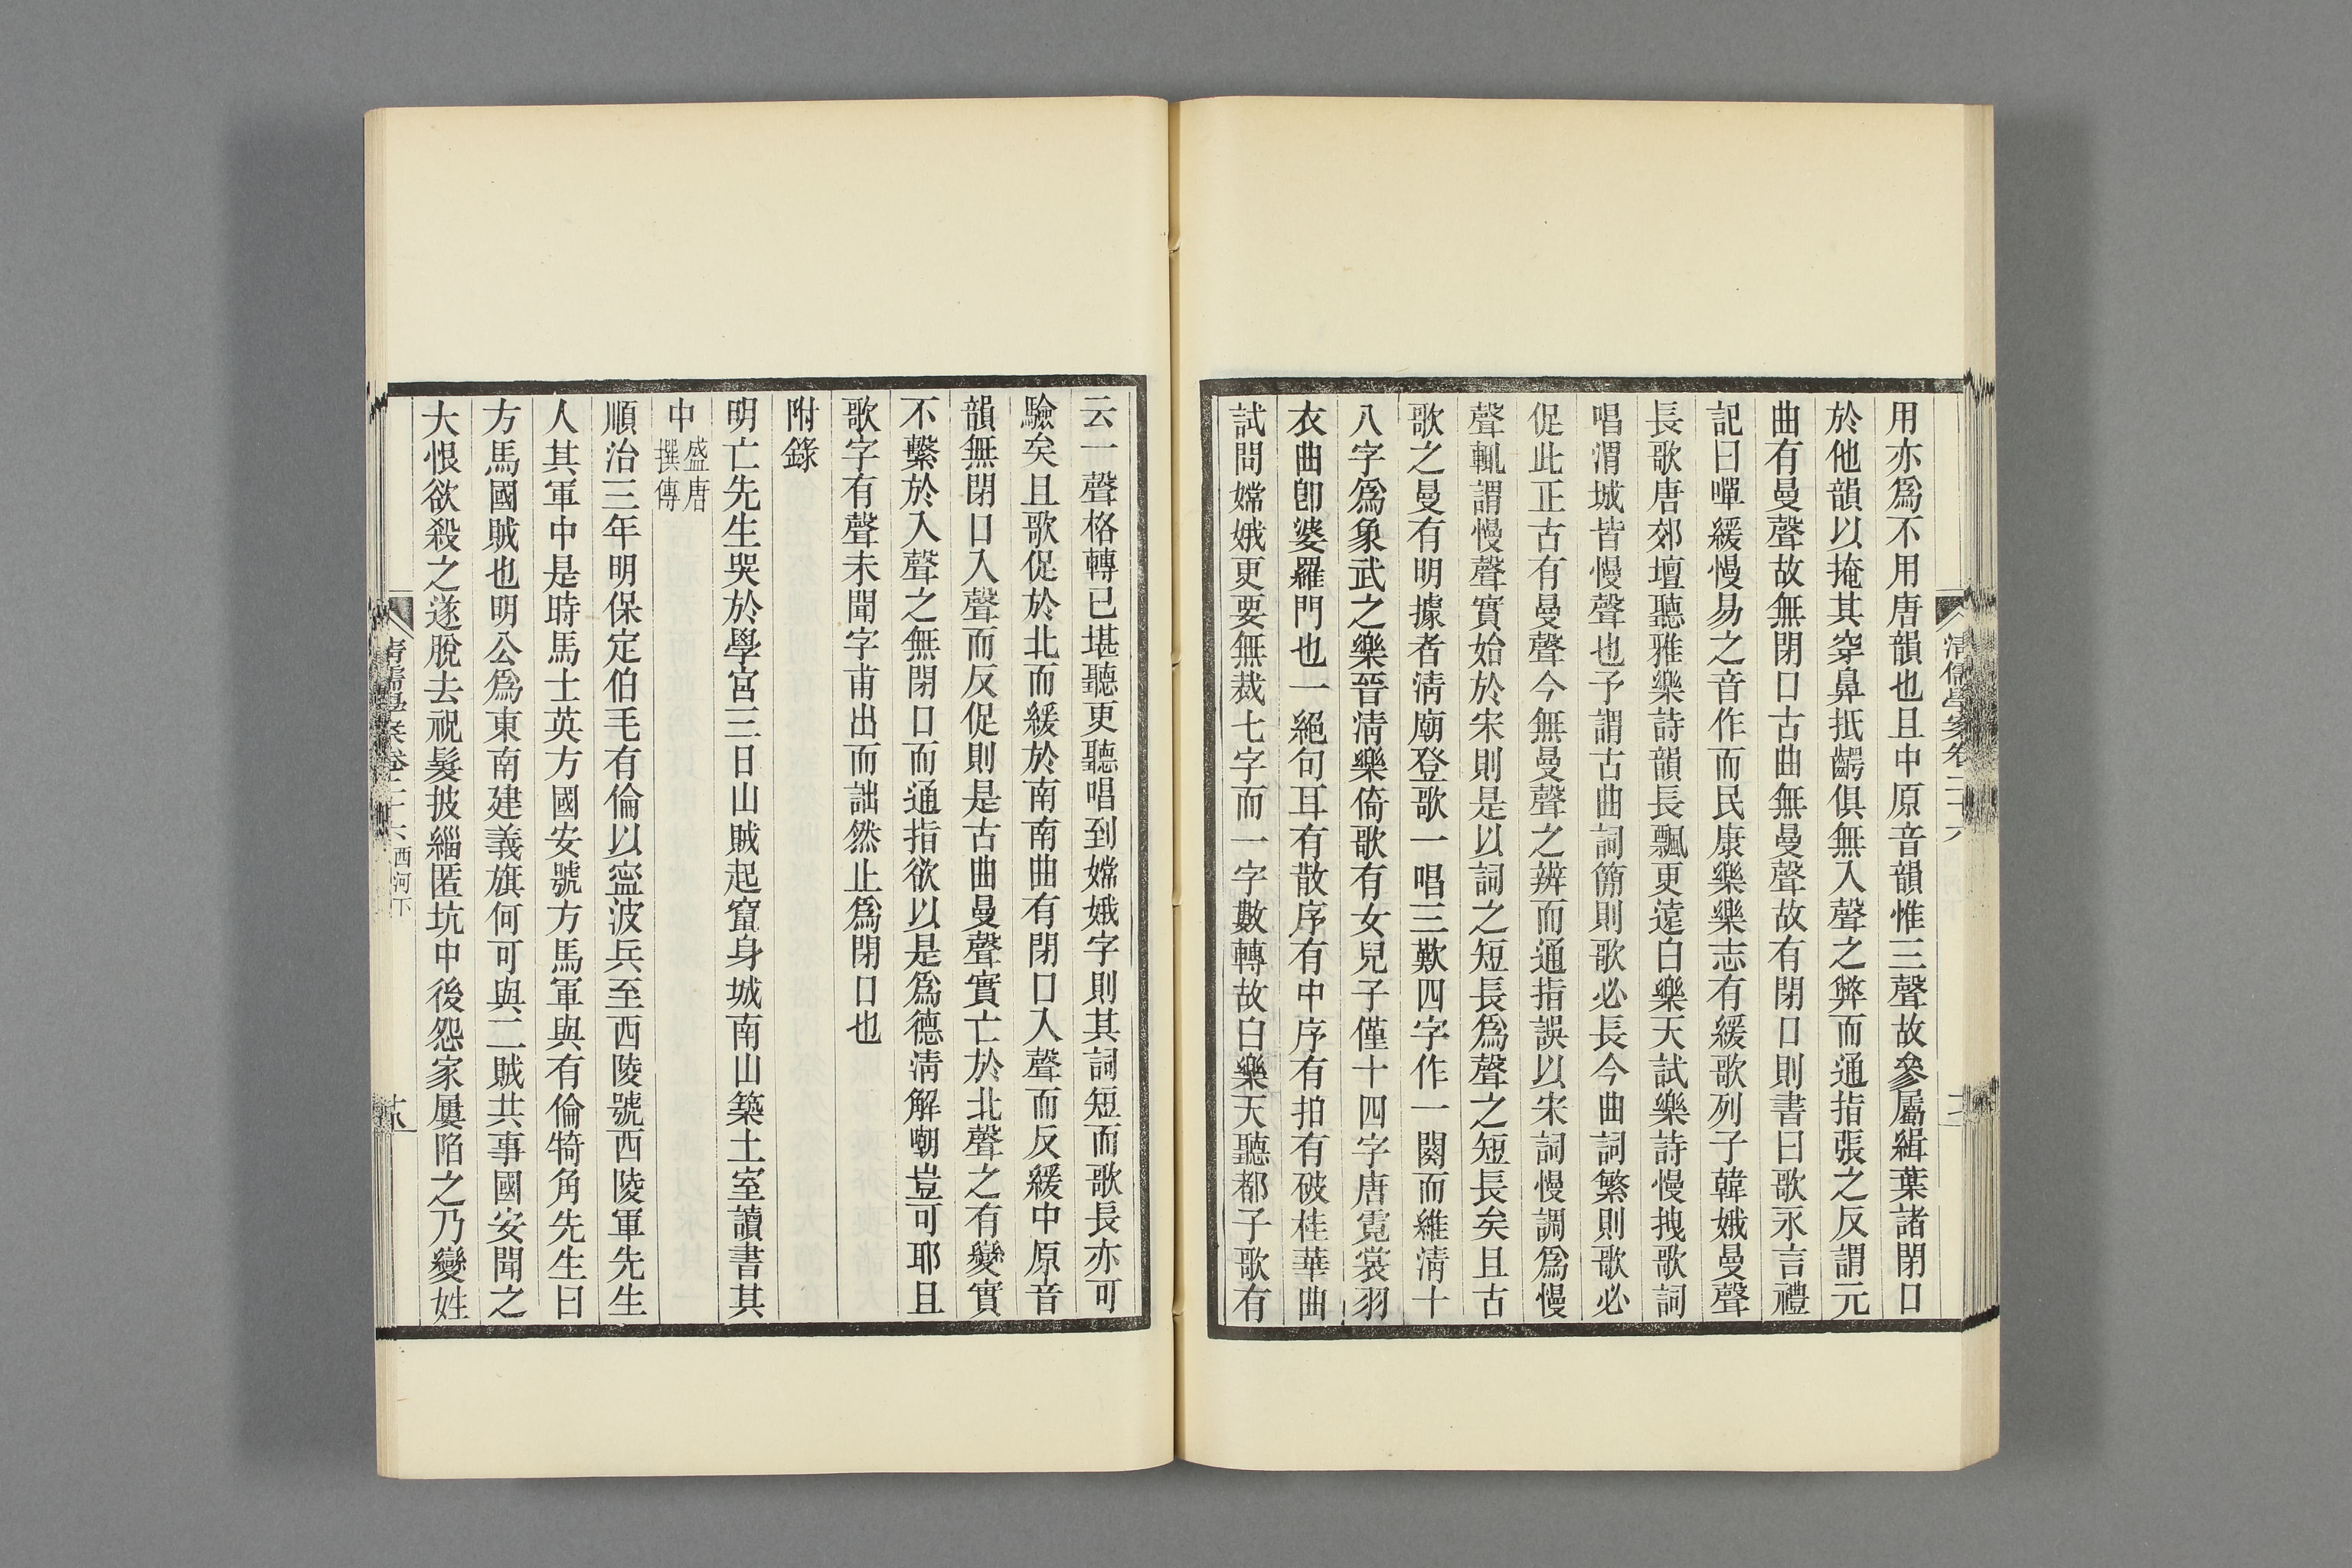 用亦爲不用唐韻也且中原音韻惟三聲故參屬緝葉諸閉口
於他韻以掩其穿鼻抵齶俱無入聲之弊而通指張之反謂元
曲有曼聲故無閉口古曲無曼聲故有閉口則書曰歌永言禮
記曰嘽緩慢易之音作而民康樂樂志有緩歌列子韓娥曼聲
長歌唐郊壇聽雅樂詩韻長飄更遠白樂天試樂詩慢拽歌詞
唱渭城皆慢聲也予謂古曲詞簡則歌必長今曲詞繁則歌必
促此正古有曼聲今無曼聲之辨而通指誤以宋詞慢調爲慢
聲輒謂慢聲實始於宋則是以詞之短長爲聲之短長矣且古
歌之曼有明據者淸廟登歌一唱三歎四字作一闋而維淸十
八字爲象武之樂晉淸樂倚歌有女兒子僅十四字唐霓裳羽
衣曲卽婆羅門也一絕句耳有散序有中序有拍有破桂華曲
試問嫦娥更要無裁七字而一字數轉故白樂天聽都子歌有
清儒學案卷二十六
云一聲格轉已堪聽更聽唱到嫦娥字則其詞短而歌長亦可
驗矣且歌促於北而緩於南南曲有閉口入聲而反緩中原音
韻無閉口入聲而反促則是古曲曼聲實亡於北聲之有變實
不繫於入聲之無閉口而通指欲以是爲德淸解嘲豈可耶且
歌字有聲未聞字甫出而詘然止爲閉口也
附錄
明亡先生哭於學宮三日山賊起竄身城南山築土室讀書其
中盛唐撰傳
順治三年明保定伯毛有倫以寍波兵至西陵號西陵軍先生
人其軍中是時馬士英方國安號方馬軍與有倫犄角先生曰
方馬國賊也明公爲東南建義旗何可與二賊共事國安聞之
大恨欲殺之遂脫去祝髮披緇匿坑中後怨家屢陷之乃變姓
清儒學案卷二十六 西河下